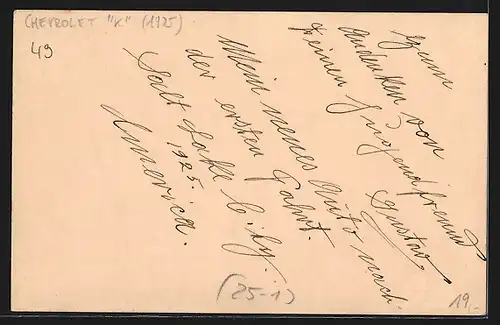 CHEVROLET "K" (1925)
49
Zum
Andenken von
Deinen Jugendfreund
Gustav.
Mein neues Auto nach
der ersten Fahrt.
Salt Lake City.
1925.
America.
(25-1)
19.-